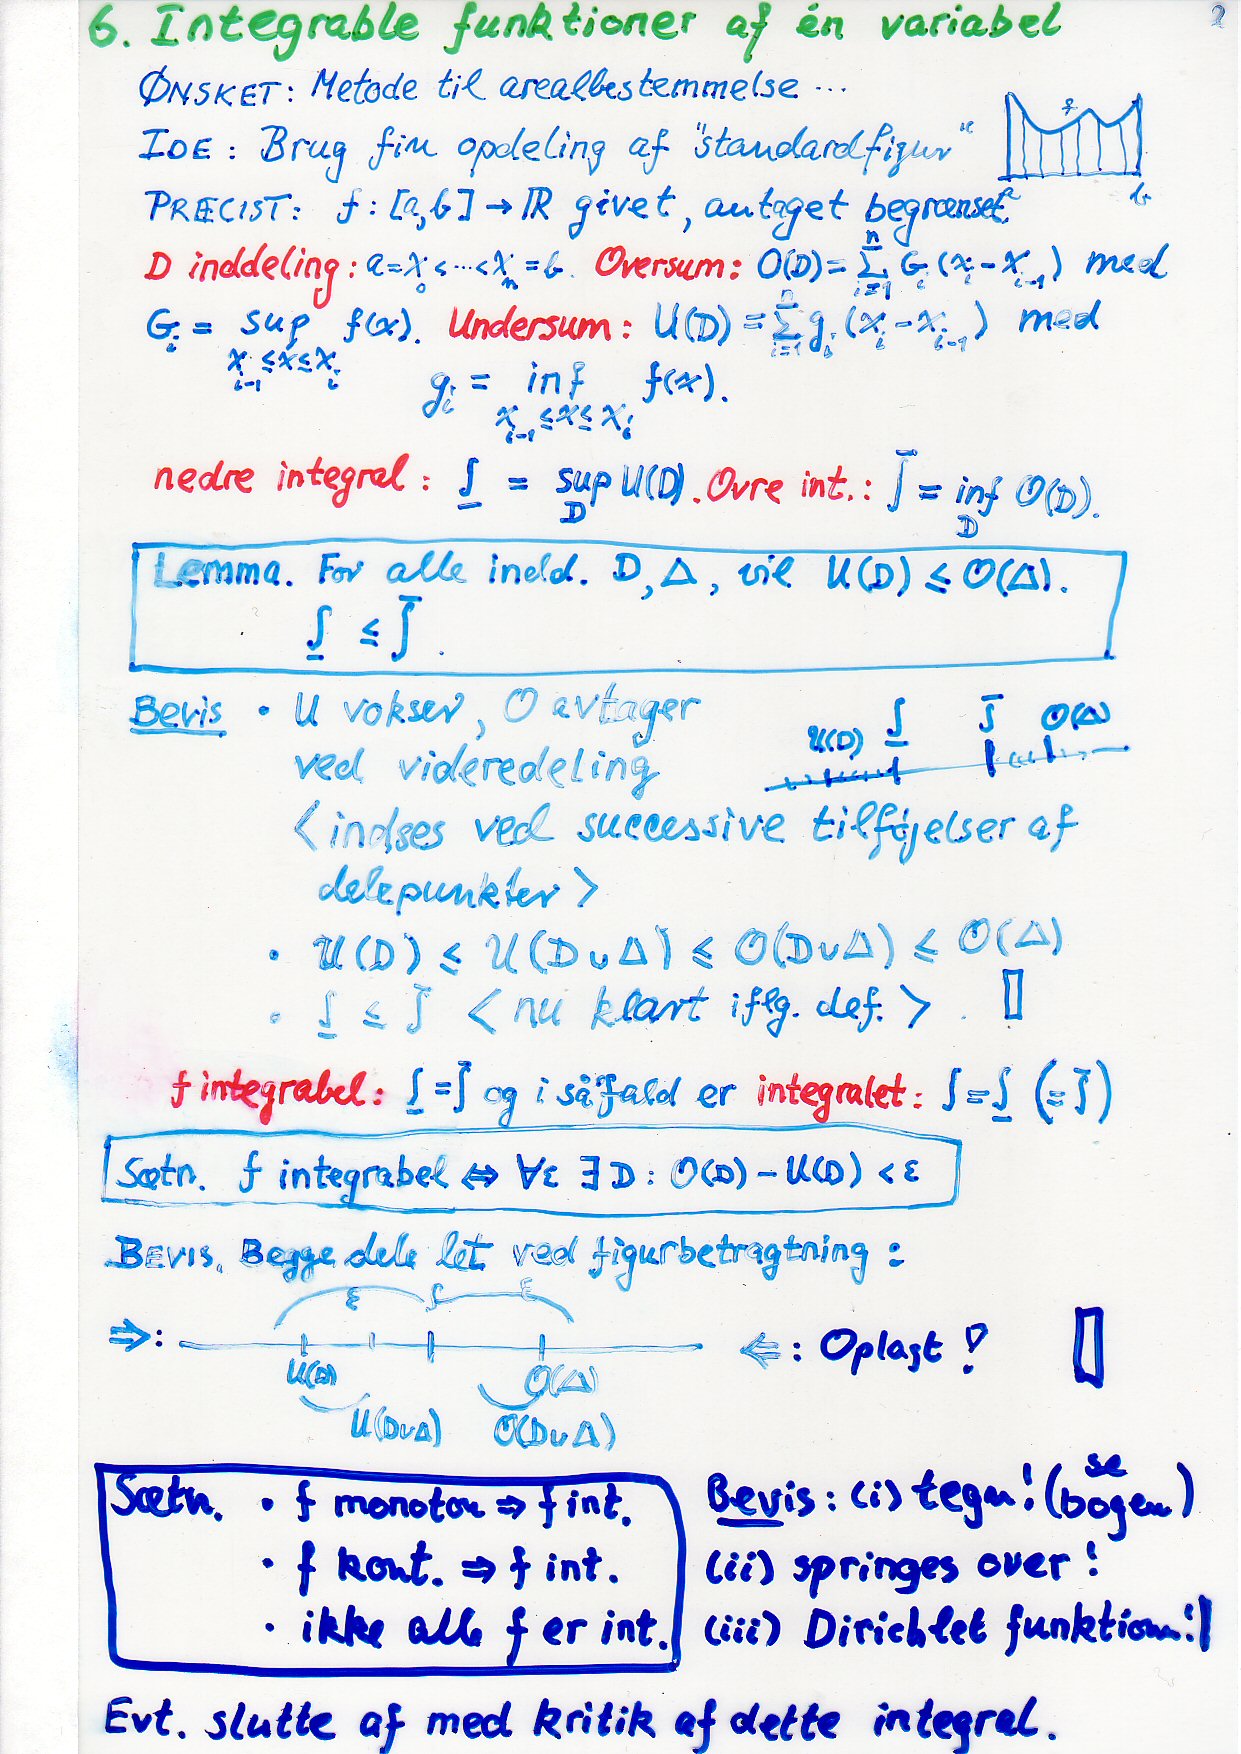 2
6. Integrable funktioner af én variabel
ØNSKET: Metode til arealbestemmelse ...
IDE: Brug fin opdeling af "standardfigur"
f
a b
PRÆCIST: f: [a,b] → ℝ givet, antaget begrænset.
D inddeling: a = x₀ < ... < xₙ = b. Oversum: O(D) = Σⁿᵢ₌₁ Gᵢ (xᵢ - xᵢ₋₁) med
Gᵢ = sup f(x). Undersum: U(D) = Σⁿᵢ₌₁ gᵢ (xᵢ - xᵢ₋₁) med
xᵢ₋₁ ≤ x ≤ xᵢ
gᵢ = inf f(x).
xᵢ₋₁ ≤ x ≤ xᵢ
nedre integral: ∫̲ = sup U(D). Øvre int.: ∫̅ = inf O(D).
D D
Lemma. For alle indd. D, Δ, vil U(D) ≤ O(Δ).
∫̲ ≤ ∫̅.
Bevis • U vokser, O avtager
ved videredeling
U(D) ∫̲ ∫̅ O(Δ)
<indses ved successive tilføjelser af
delepunkter>
• U(D) ≤ U(D∪Δ) ≤ O(D∪Δ) ≤ O(Δ)
• ∫̲ ≤ ∫̅ <nu klart iflg. def.>. ▯
f integrabel: ∫̲ = ∫̅ og i så fald er integralet: ∫ = ∫̲ (= ∫̅)
Sætn. f integrabel ⇔ ∀ε ∃D: O(D) - U(D) < ε
BEVIS. Begge dele let ved figurbetragtning:
ε ∫ ε
⇒: ⇐: Oplagt! ▯
U(D) O(Δ)
U(D∪Δ) O(D∪Δ)
Sætn. • f monoton ⇒ f int. Bevis: (i) tegn! (se bogen)
• f kont. ⇒ f int. (ii) springes over!
• ikke alle f er int. (iii) Dirichlet funktion!
Evt. slutte af med kritik af dette integral.